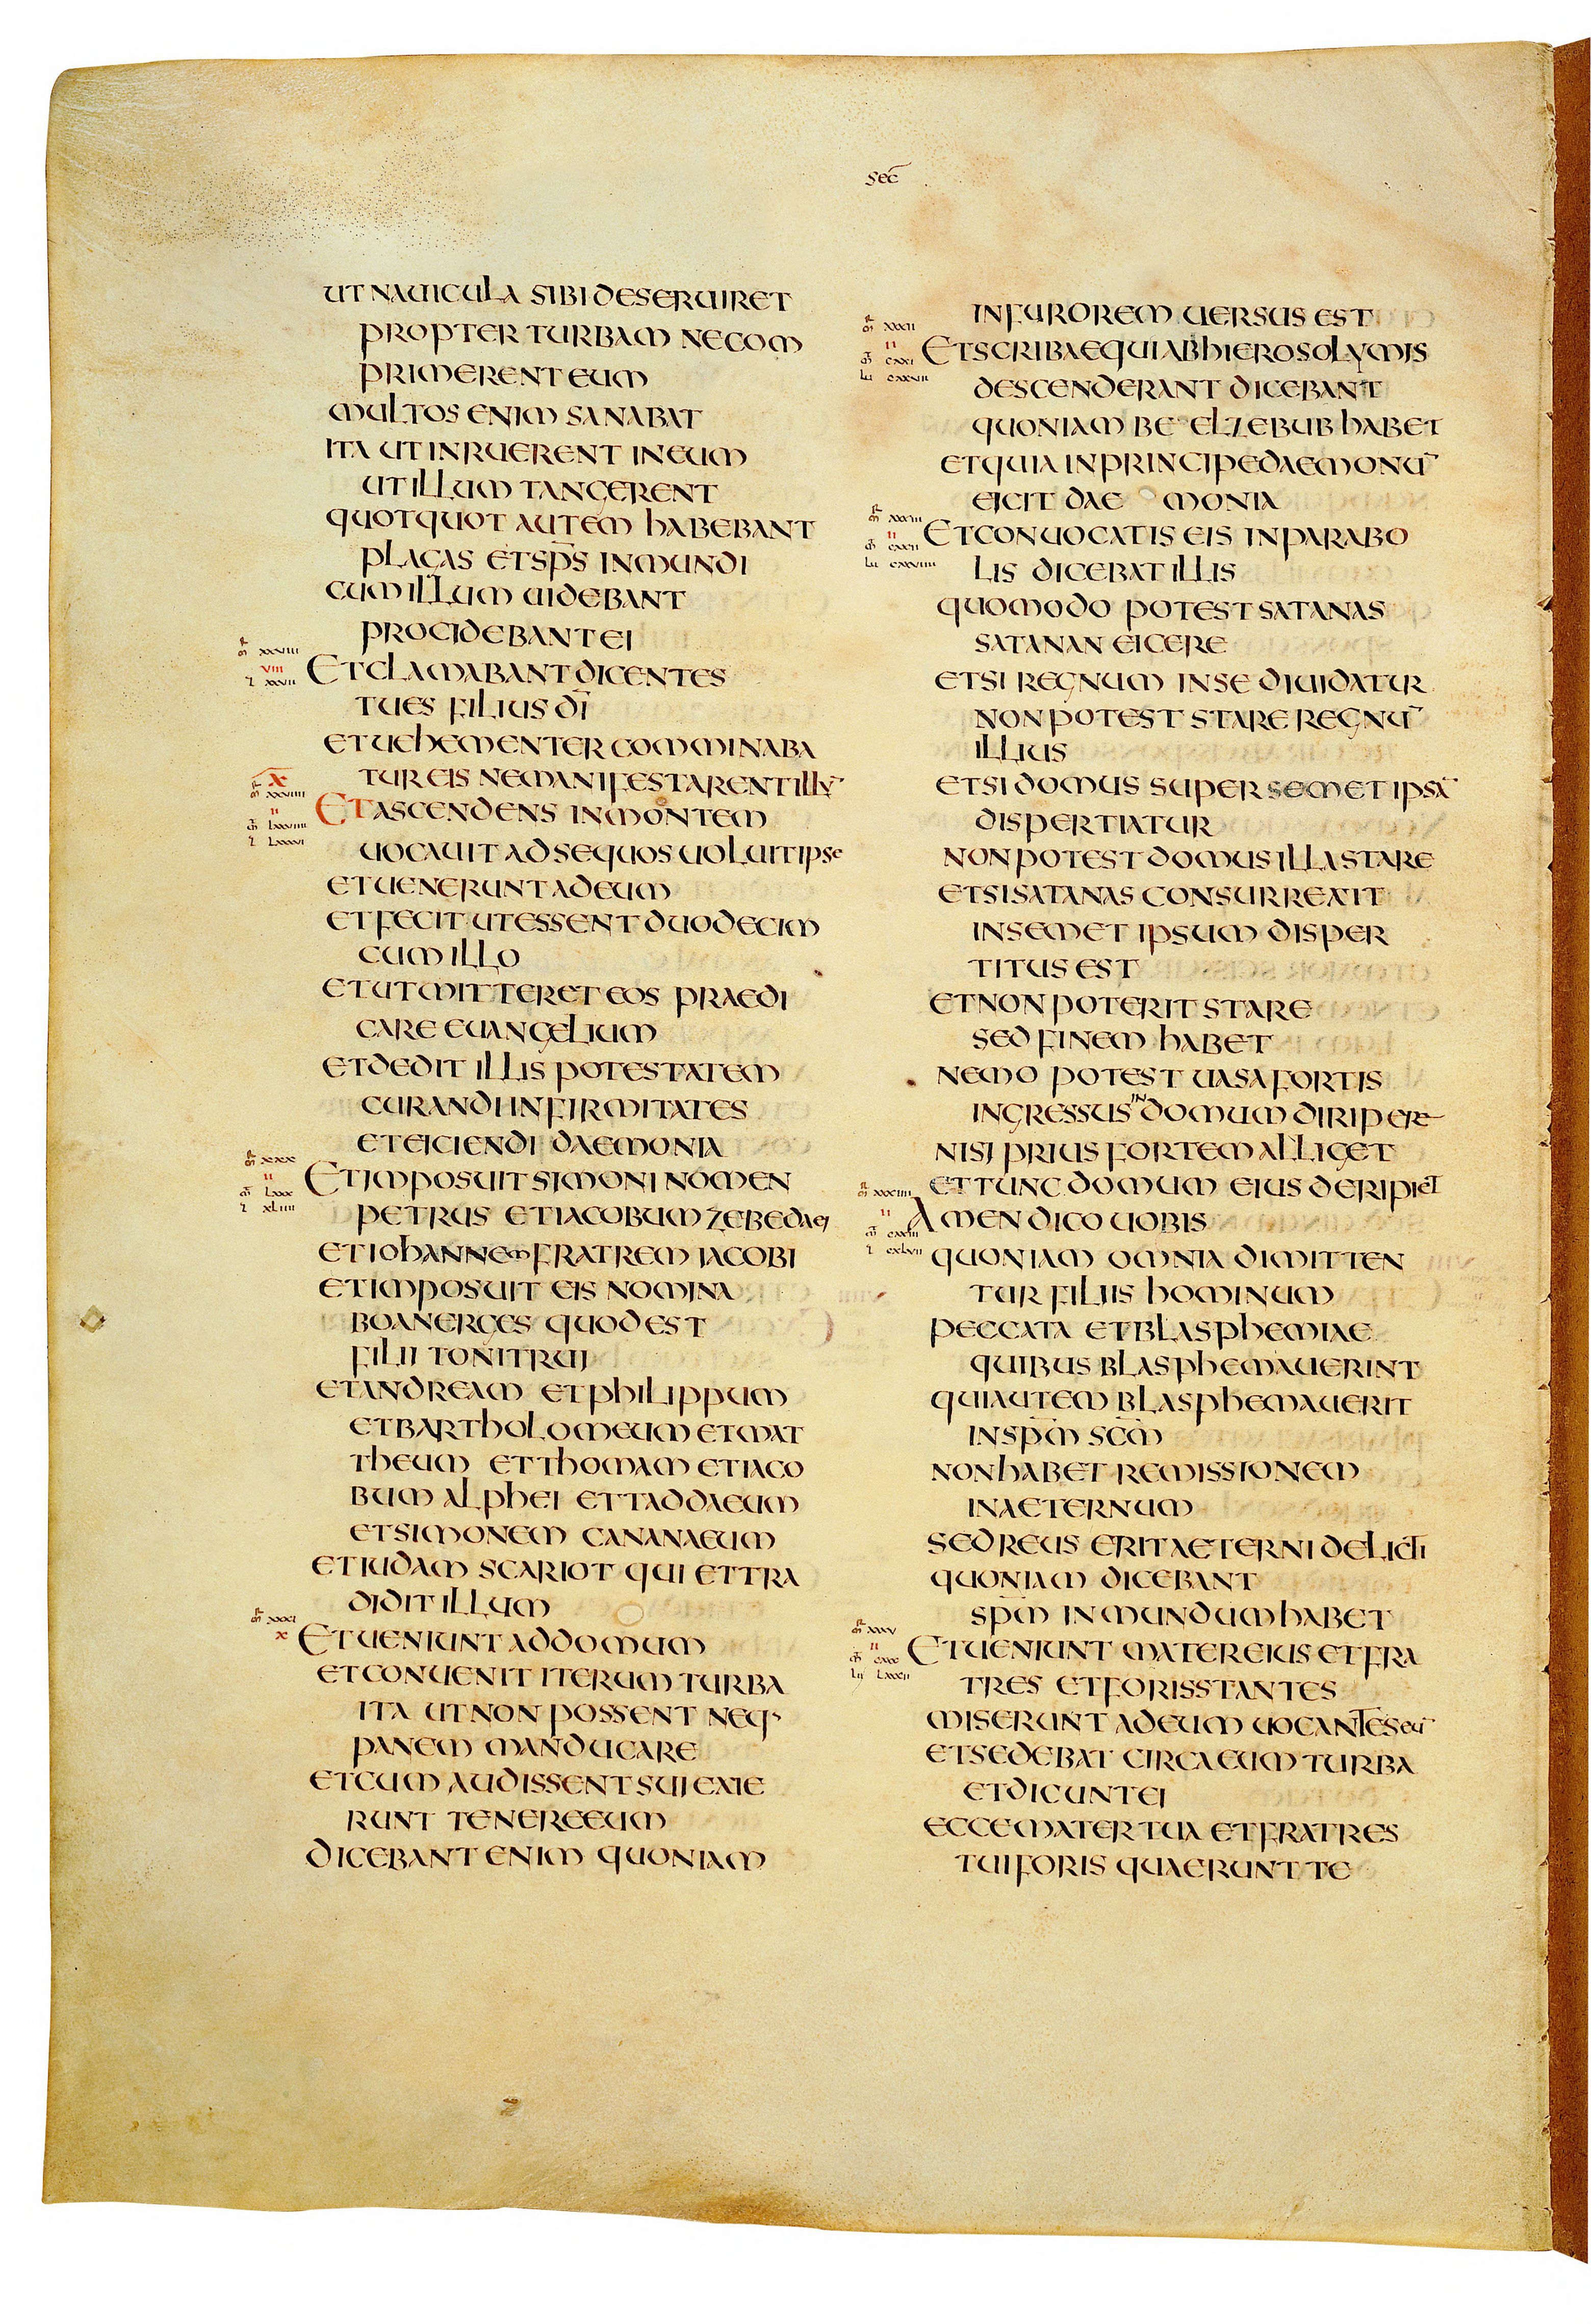 sec̄
UT NAUICULA SIBI DESERUIRET
PROPTER TURBAM NE COM
PRIMERENT EUM
MULTOS ENIM SANABAT
ITA UT INRUERENT IN EUM
UT ILLUM TANGERENT
QUOTQUOT AUTEM HABEBANT
PLAGAS ET SP̄S INMUNDI
CUM ILLUM UIDEBANT
PROCIDEBANT EI
mr̄ xxviii
viii
l xxvii
ET CLAMABANT DICENTES
TU ES FILIUS DĪ
ET UEHEMENTER COMMINABA
TUR EIS NE MANIFESTARENT ILLŪ
x
mr̄ xxviiii
ii
mt̄ lxxviiii
l lxxxvi
ET ASCENDENS IN MONTEM
UOCAUIT AD SE QUOS UOLUIT IPSE
ET UENERUNT AD EUM
ET FECIT UT ESSENT DUODECIM
CUM ILLO
ET UT MITTERET EOS PRAEDI
CARE EUANGELIUM
ET DEDIT ILLIS POTESTATEM
CURANDI INFIRMITATES
ET EICIENDI DAEMONIA
mr̄ xxx
ii
mt̄ lxxx
l xliiii
ET IMPOSUIT SIMONI NOMEN
PETRUS ET IACOBUM ZEBEDAEI
ET IOHANNEM FRATREM IACOBI
ET IMPOSUIT EIS NOMINA
BOANERGES QUOD EST
FILII TONITRUI
ET ANDREAM ET PHILIPPUM
ET BARTHOLOMEUM ET MAT
THEUM ET THOMAM ET IACO
BUM ALPHEI ET TADDAEUM
ET SIMONEM CANANAEUM
ET IUDAM SCARIOT QUI ET TRA
DIDIT ILLUM
mr̄ xxxi
x
ET UENIUNT AD DOMUM
ET CONUENIT ITERUM TURBA
ITA UT NON POSSENT NEQ·
PANEM MANDUCARE
ET CUM AUDISSENT SUI EXIE
RUNT TENERE EUM
DICEBANT ENIM QUONIAM
IN FUROREM UERSUS EST
mr̄ xxxii
ii
mt̄ cxxi
lu cxxvii
ET SCRIBAE QUI AB HIEROSOLYMIS
DESCENDERANT DICEBANT
QUONIAM BEELZEBUB HABET
ET QUIA IN PRINCIPE DAEMONŪ
EICIT DAEMONIA
mr̄ xxxiii
ii
mt̄ cxxii
lu cxxviiii
ET CONUOCATIS EIS IN PARABO
LIS DICEBAT ILLIS
QUOMODO POTEST SATANAS
SATANAN EICERE
ET SI REGNUM IN SE DIUIDATUR
NON POTEST STARE REGNŪ
ILLIUS
ET SI DOMUS SUPER SEMET IPSĀ
DISPERTIATUR
NON POTEST DOMUS ILLA STARE
ET SI SATANAS CONSURREXIT
IN SEMET IPSUM DISPER
TITUS EST
ET NON POTERIT STARE
SED FINEM HABET
NEMO POTEST UASA FORTIS
INGRESSUS IN DOMUM DIRIPERE
NISI PRIUS FORTEM ALLIGET
ET TUNC DOMUM EIUS DERIPIET
mr̄ xxxiiii
ii
mt̄ cxxiii
l cxlvii
AMEN DICO UOBIS
QUONIAM OMNIA DIMITTEN
TUR FILIIS HOMINUM
PECCATA ET BLASPHEMIAE
QUIBUS BLASPHEMAUERINT
QUI AUTEM BLASPHEMAUERIT
IN SPM̄ SCM̄
NON HABET REMISSIONEM
IN AETERNUM
SED REUS ERIT AETERNI DELICTI
QUONIAM DICEBANT
SPM̄ INMUNDUM HABET
mr̄ xxxv
ii
mt̄ cxxx
lu lxxxii
ET UENIUNT MATER EIUS ET FRA
TRES ET FORIS STANTES
MISERUNT AD EUM UOCANTES EŪ
ET SEDEBAT CIRCA EUM TURBA
ET DICUNT EI
ECCE MATER TUA ET FRATRES
TUI FORIS QUAERUNT TE